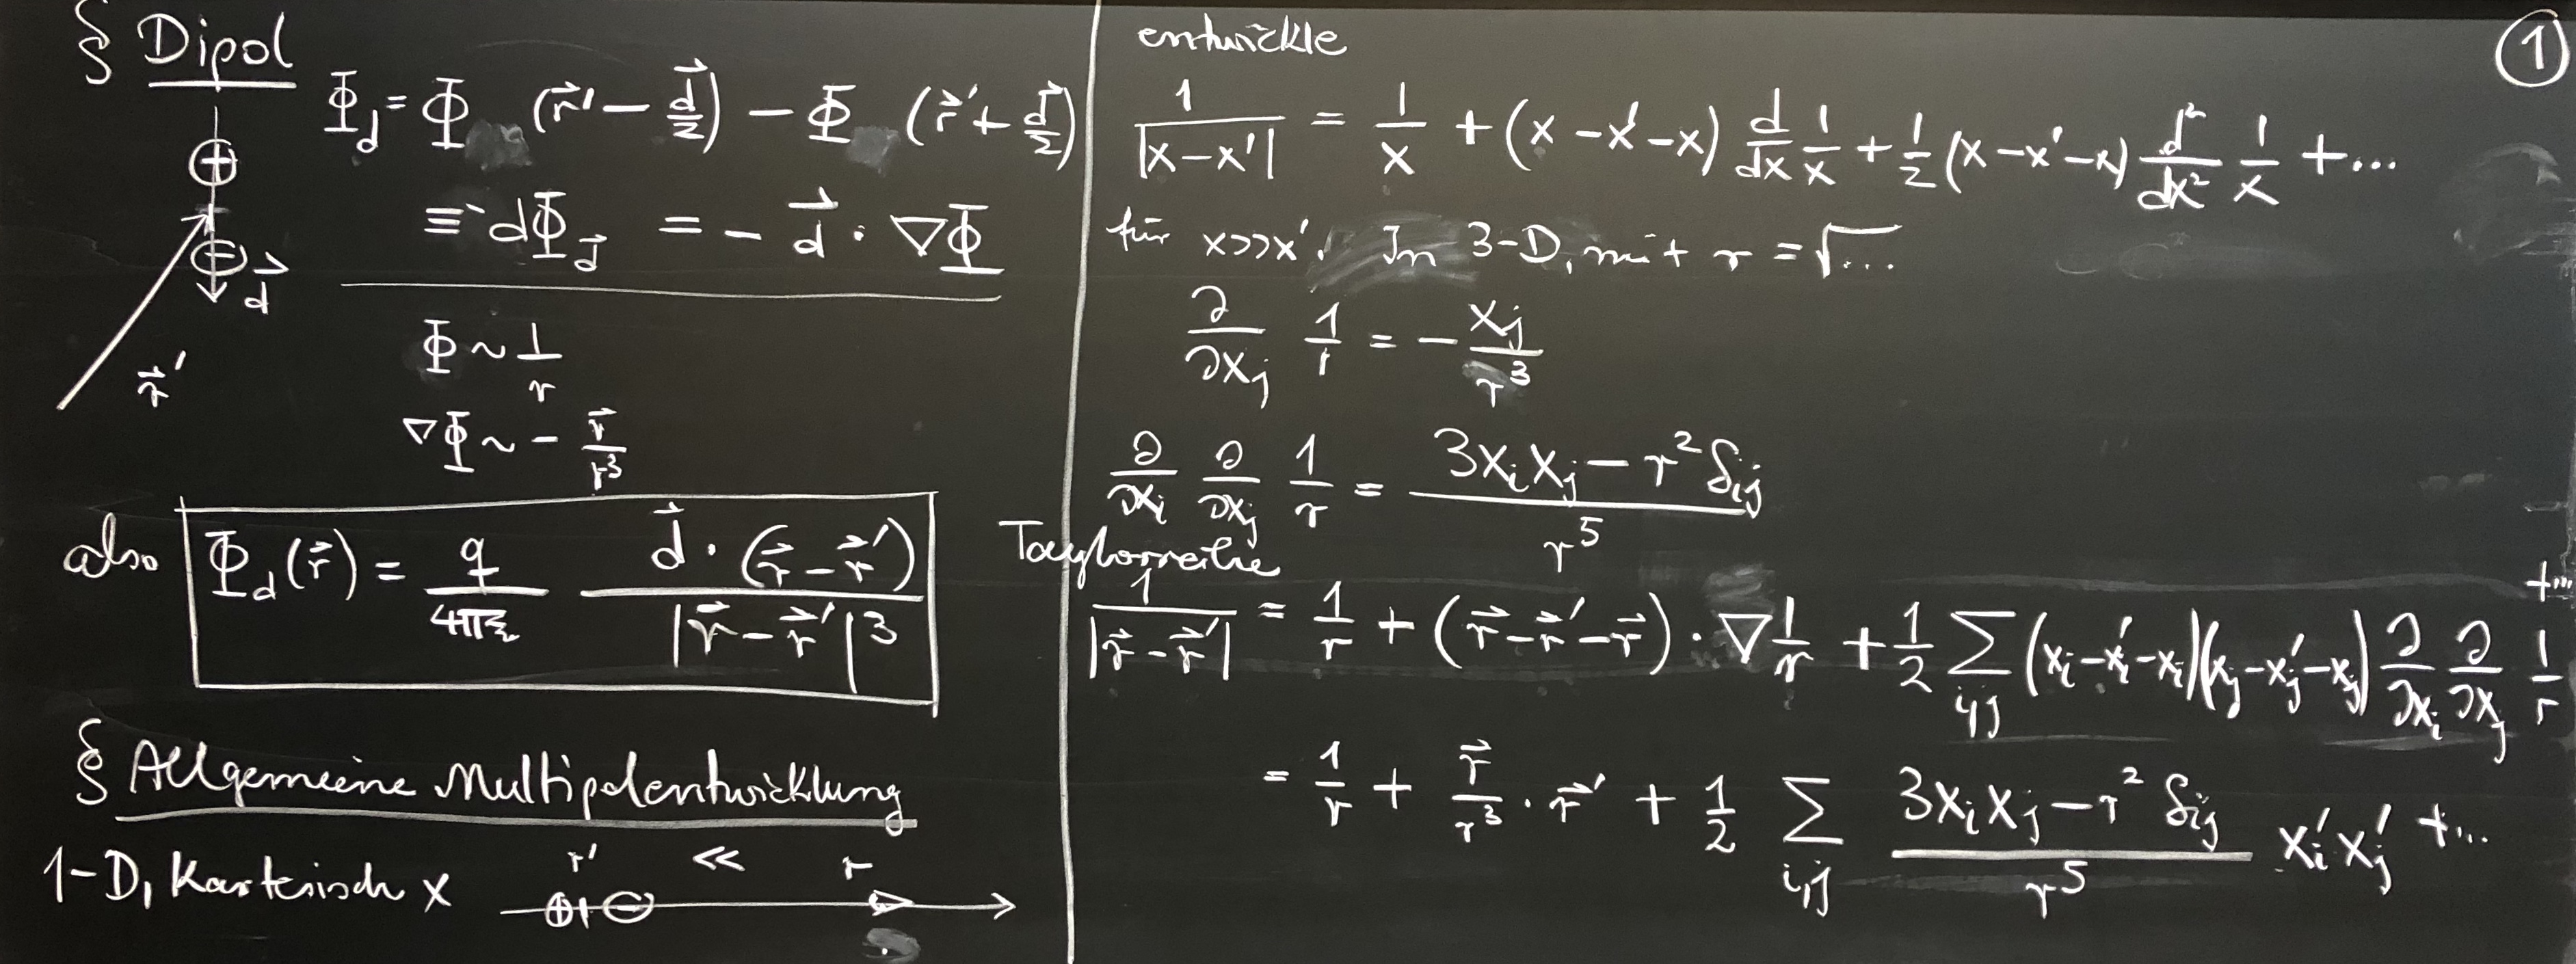 § Dipol
⊕
⊖
d⃗
r⃗'
Φ_d = Φ (r⃗' − d⃗/2) − Φ (r⃗' + d⃗/2)
≡ dΦ_d⃗ = − d⃗ · ∇Φ
Φ ~ 1/r
∇Φ ~ − r⃗/r³
also Φ_d(r⃗) = q/(4πε₀) d⃗ · (r⃗ − r⃗')/|r⃗ − r⃗'|³
§ Allgemeine Multipolentwicklung
1-D, Kartesisch x r' << r
⊕ ⊖
①
entwickle
1/|x−x'| = 1/x + (x − x' − x) d/dx 1/x + 1/2 (x − x' − x) d²/dx² 1/x + ...
für x>>x'. In 3-D, mit r = √...
∂/∂x_j 1/r = − x_j/r³
∂/∂x_i ∂/∂x_j 1/r = (3x_i x_j − r² δ_ij)/r⁵
Taylorreihe
1/|r⃗ − r⃗'| = 1/r + (r⃗ − r⃗' − r⃗) · ∇ 1/r + 1/2 Σ_{i,j} (x_i − x_i' − x_i)(x_j − x_j' − x_j) ∂/∂x_i ∂/∂x_j 1/r +...
= 1/r + r⃗/r³ · r⃗' + 1/2 Σ_{i,j} (3x_i x_j − r² δ_ij)/r⁵ x_i' x_j' + ...